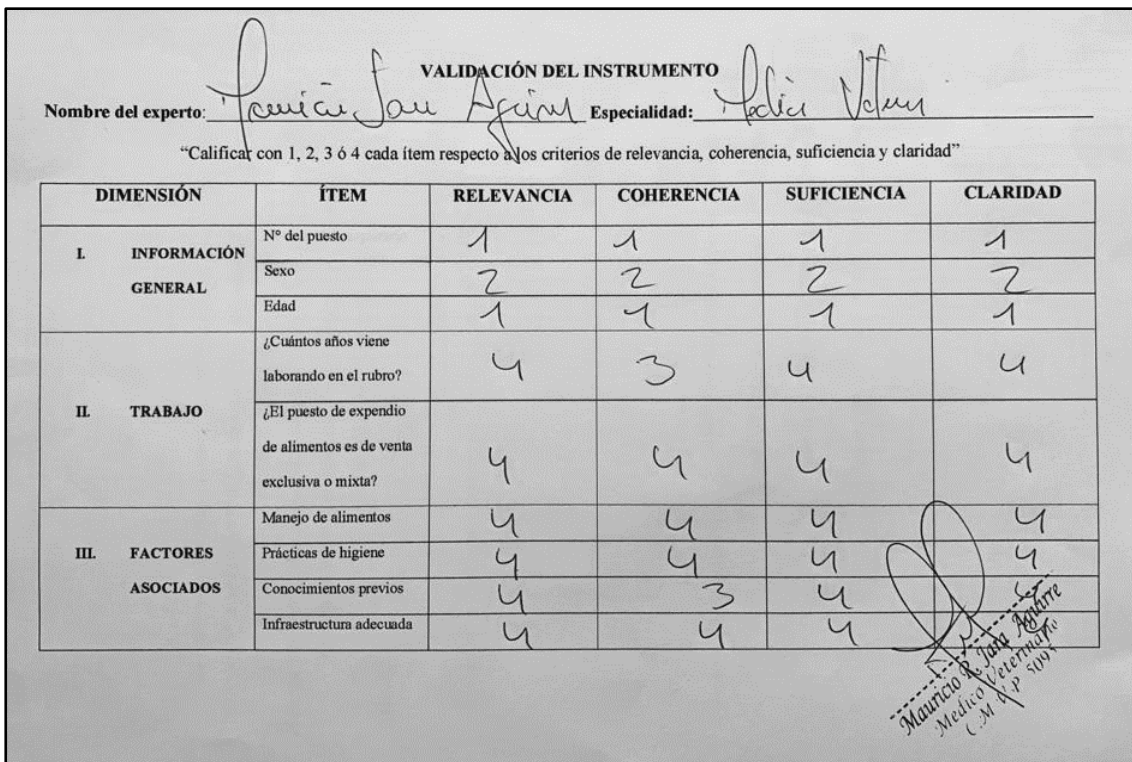 VALIDACIÓN DEL INSTRUMENTO
Nombre del experto: Mauricio Jara Aguirre Especialidad: Medico Veterin
“Calificar con 1, 2, 3 ó 4 cada ítem respecto a los criterios de relevancia, coherencia, suficiencia y claridad”
DIMENSIÓN ÍTEM RELEVANCIA COHERENCIA SUFICIENCIA CLARIDAD
I. INFORMACIÓN GENERAL
Nº del puesto 1 1 1 1
Sexo 2 2 2 2
Edad 1 1 1 1
II. TRABAJO
¿Cuántos años viene
laborando en el rubro? 4 3 4 4
¿El puesto de expendio
de alimentos es de venta
exclusiva o mixta? 4 4 4 4
III. FACTORES
ASOCIADOS
Manejo de alimentos 4 4 4 4
Prácticas de higiene 4 4 4 4
Conocimientos previos 4 3 4
Infraestructura adecuada 4 4 4
Mauricio R. Jara Aguirre
Medico Veterinario
C.M.V.P 5095